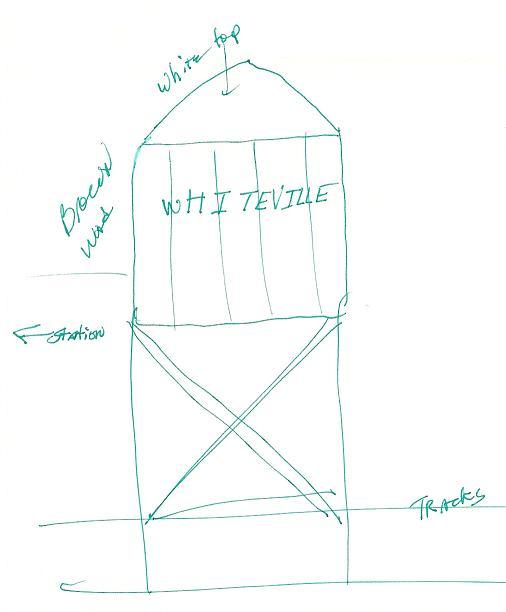 white top
wood
WHITEVILLE
station
TRACKS